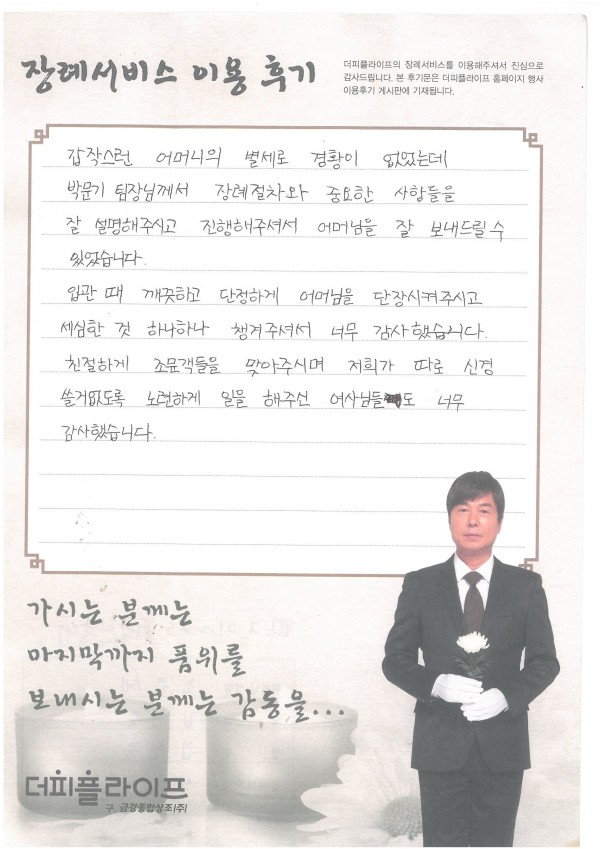 장례서비스 이용 후기
더피플라이프의 장례서비스를 이용해주셔서 진심으로
감사드립니다. 본 후기문은 더피플라이프 홈페이지 행사
이용후기 게시판에 기재됩니다.
갑작스런 어머니의 별세로 경황이 없었는데
박문기 팀장님께서 장례절차와 중요한 사항들을
잘 설명해주시고 진행해주셔서 어머님을 잘 보내드릴 수
있었습니다.
입관 때 깨끗하고 단정하게 어머님을 단장시켜주시고
세심한 것 하나하나 챙겨주셔서 너무 감사했습니다.
친절하게 조문객들을 맞아주시며 저희가 따로 신경
쓸거없도록 노련하게 일을 해주신 여사님들도 너무
감사했습니다.
가시는 분께는
마지막까지 품위를
보내시는 분께는 감동을...
더피플라이프
구. 금강종합상조(주)